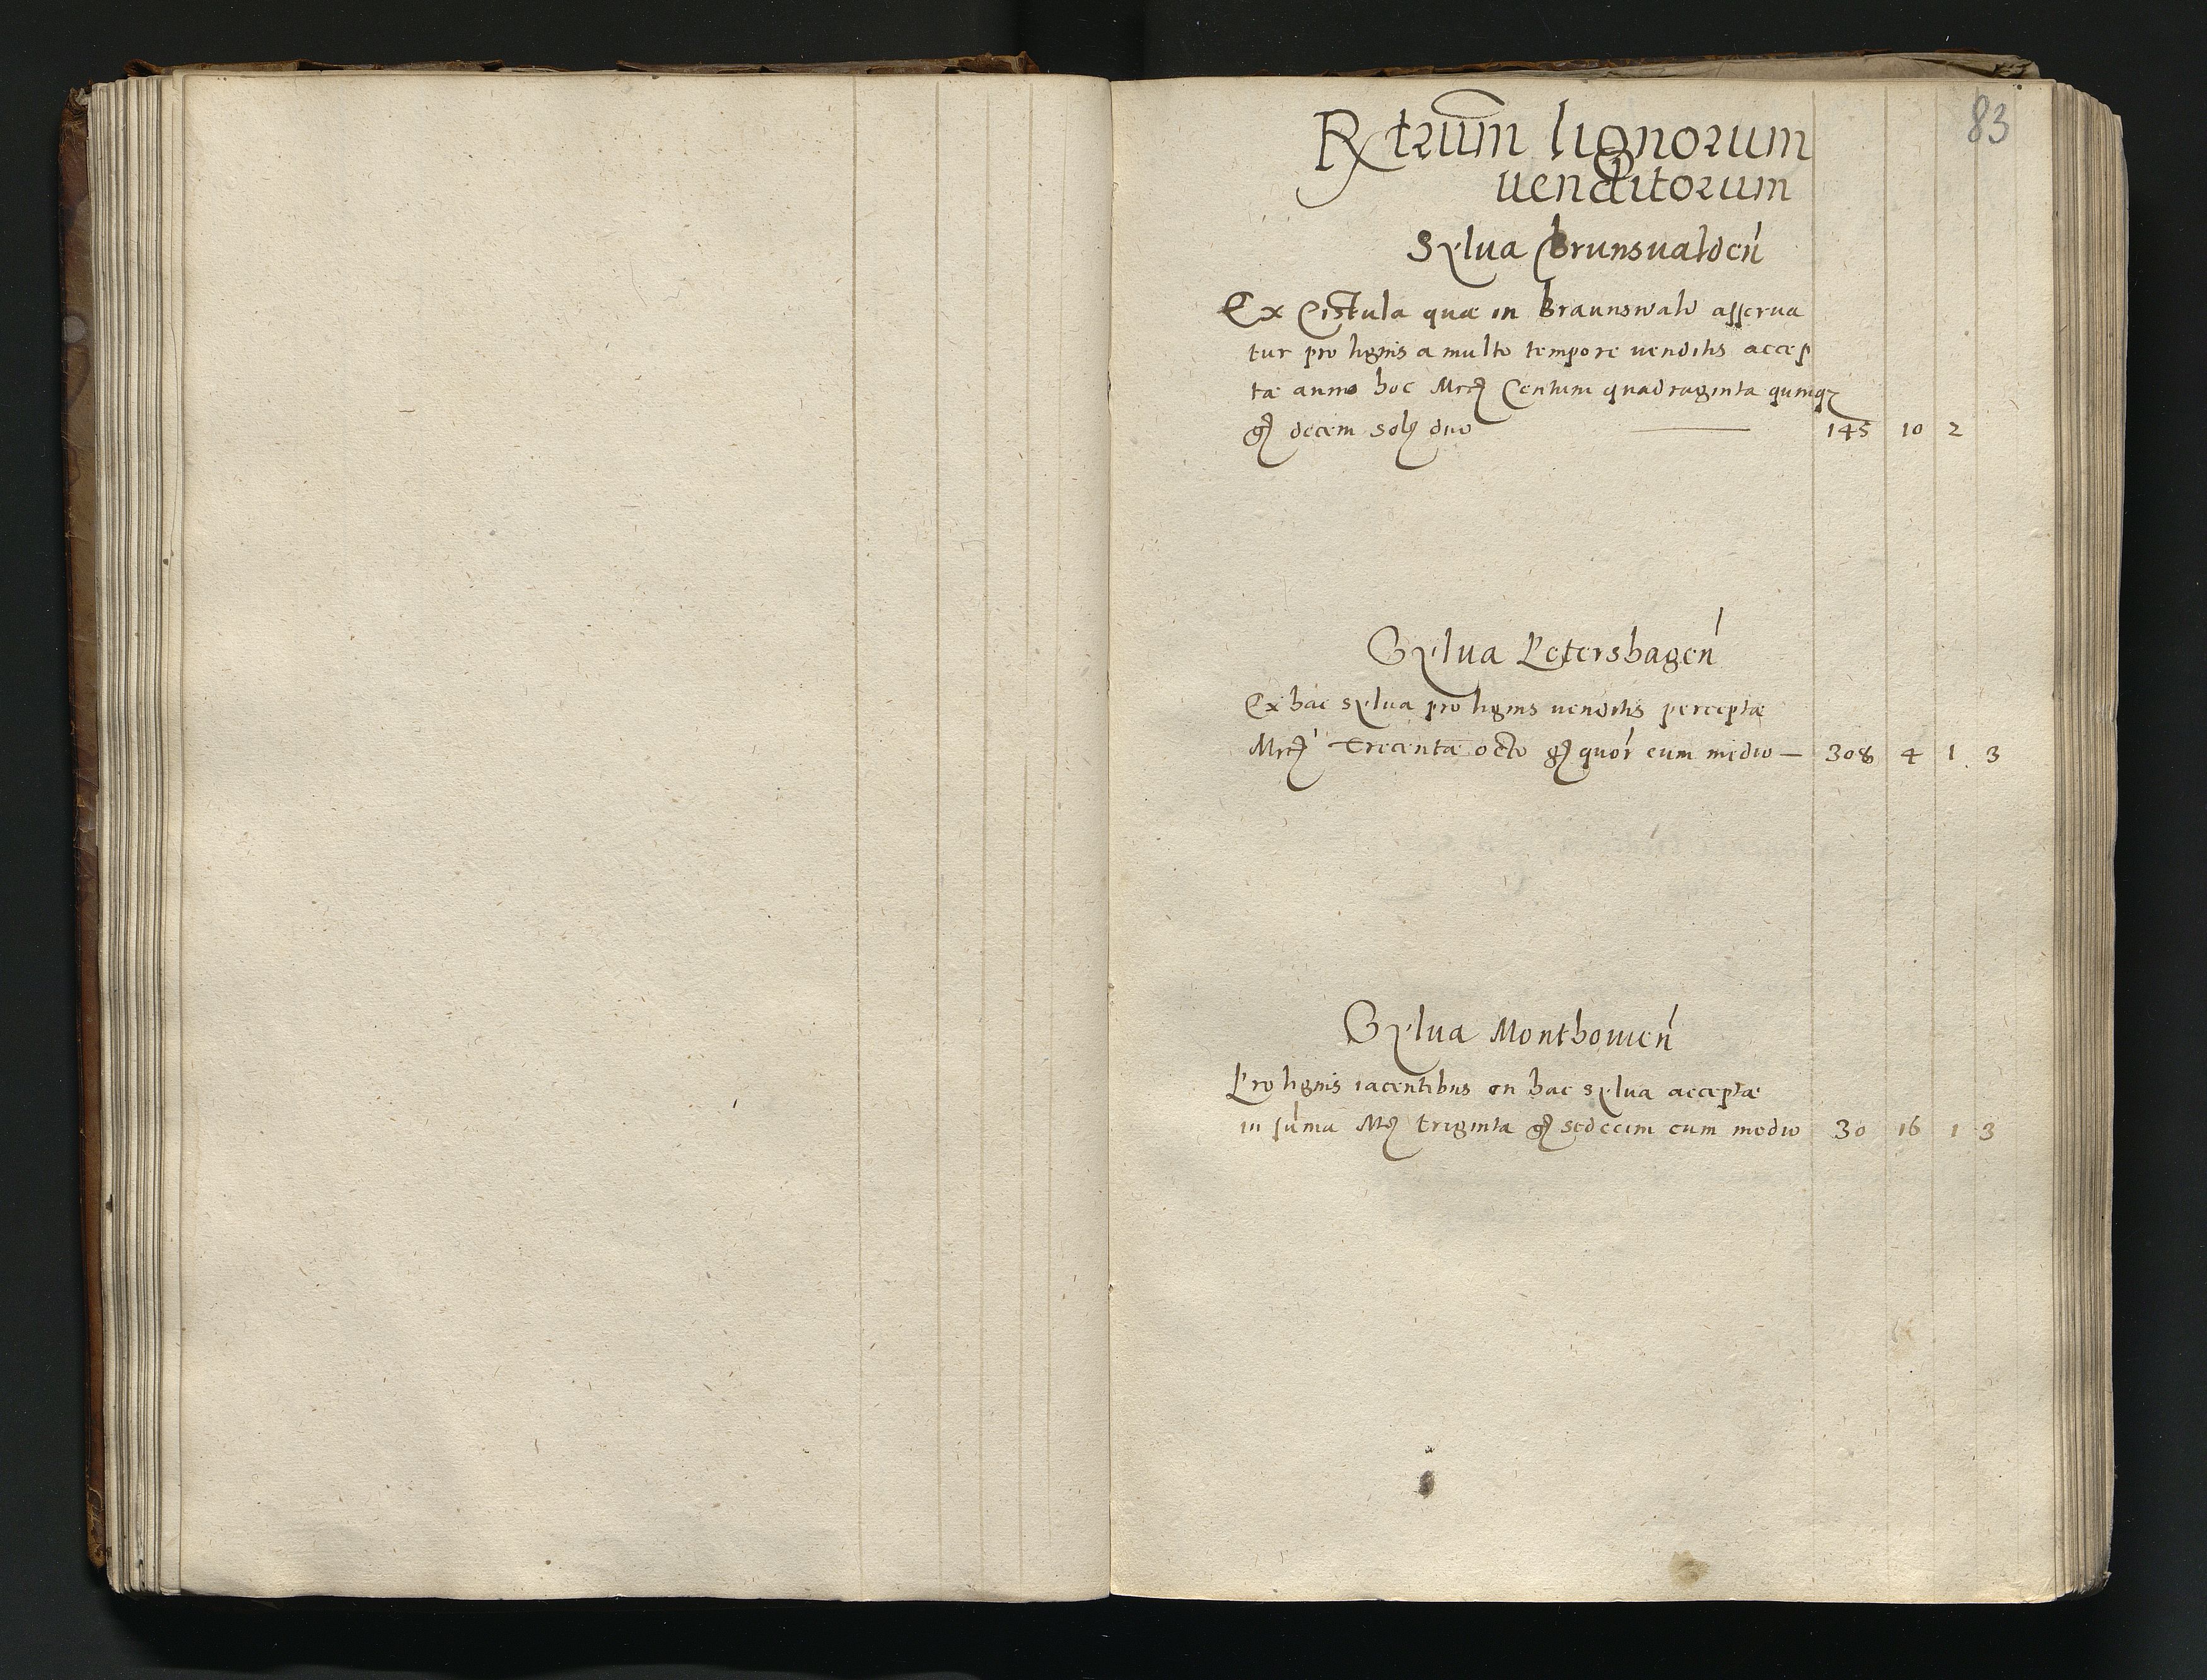 83
Rxtrum lignorum
uenditorum
Sylua Brunsualden
Ex Cistula quæ in Braunswald asserua
tur pro lignis a multo tempore venditis accep
tæ anno hoc Mrc Centum quadraginta quinq
g decem sol duo 145 10 2
Sylua Petershagen
Ex hac sylua pro lignis venditis perceptæ
Mrc Trecentæ octo g quor cum medio — 308 4 1 3
Sylua Monthouien
Pro lignis iacentibus in hac sylua acceptæ
in suma Mr triginta g sedecim cum medio 30 16 1 3